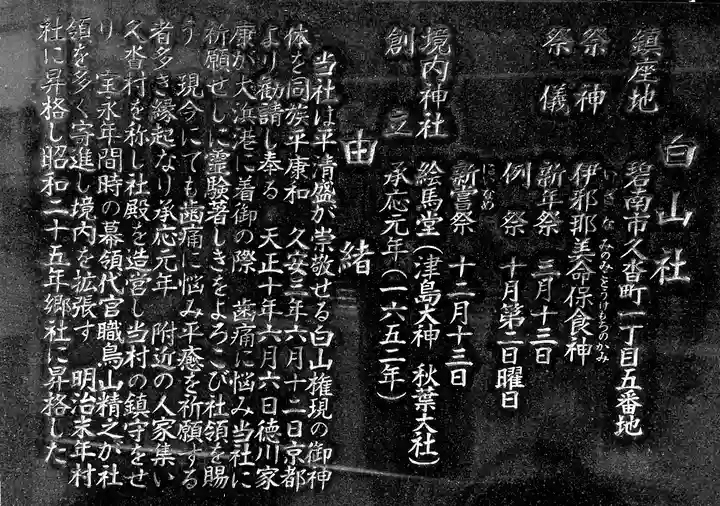 白山社
鎮座地 碧南市久沓町一丁目五番地
祭神 伊邪耶美命保食神
いざなみのみことうけもちのかみ
祭儀 新年祭 三月十三日
例祭 十月第二日曜日
新嘗祭 十二月十三日
にいなめ
境内神社 絵馬堂(津島大神 秋葉大社)
創立 承応元年(一六五二年)
由緒
当社は平清盛が崇敬せる白山権現の御神
体を同族平康和 久安三年六月十二日京都
より勧請し奉る 天正十年六月六日徳川家
康が大浜港に着御の際 歯痛に悩み当社に
祈願せしに霊験著しきをよろこび社領を賜
う 現今にても歯痛に悩み平癒を祈願する
者多き縁起なり承応元年 附近の人家集い
久沓村を称し社殿を造営し当村の鎮守をせ
り 宝永年間時の幕領代官職鳥山精之が社
領を多く寄進し境内を拡張す 明治末年村
社に昇格し昭和二十五年郷社に昇格した